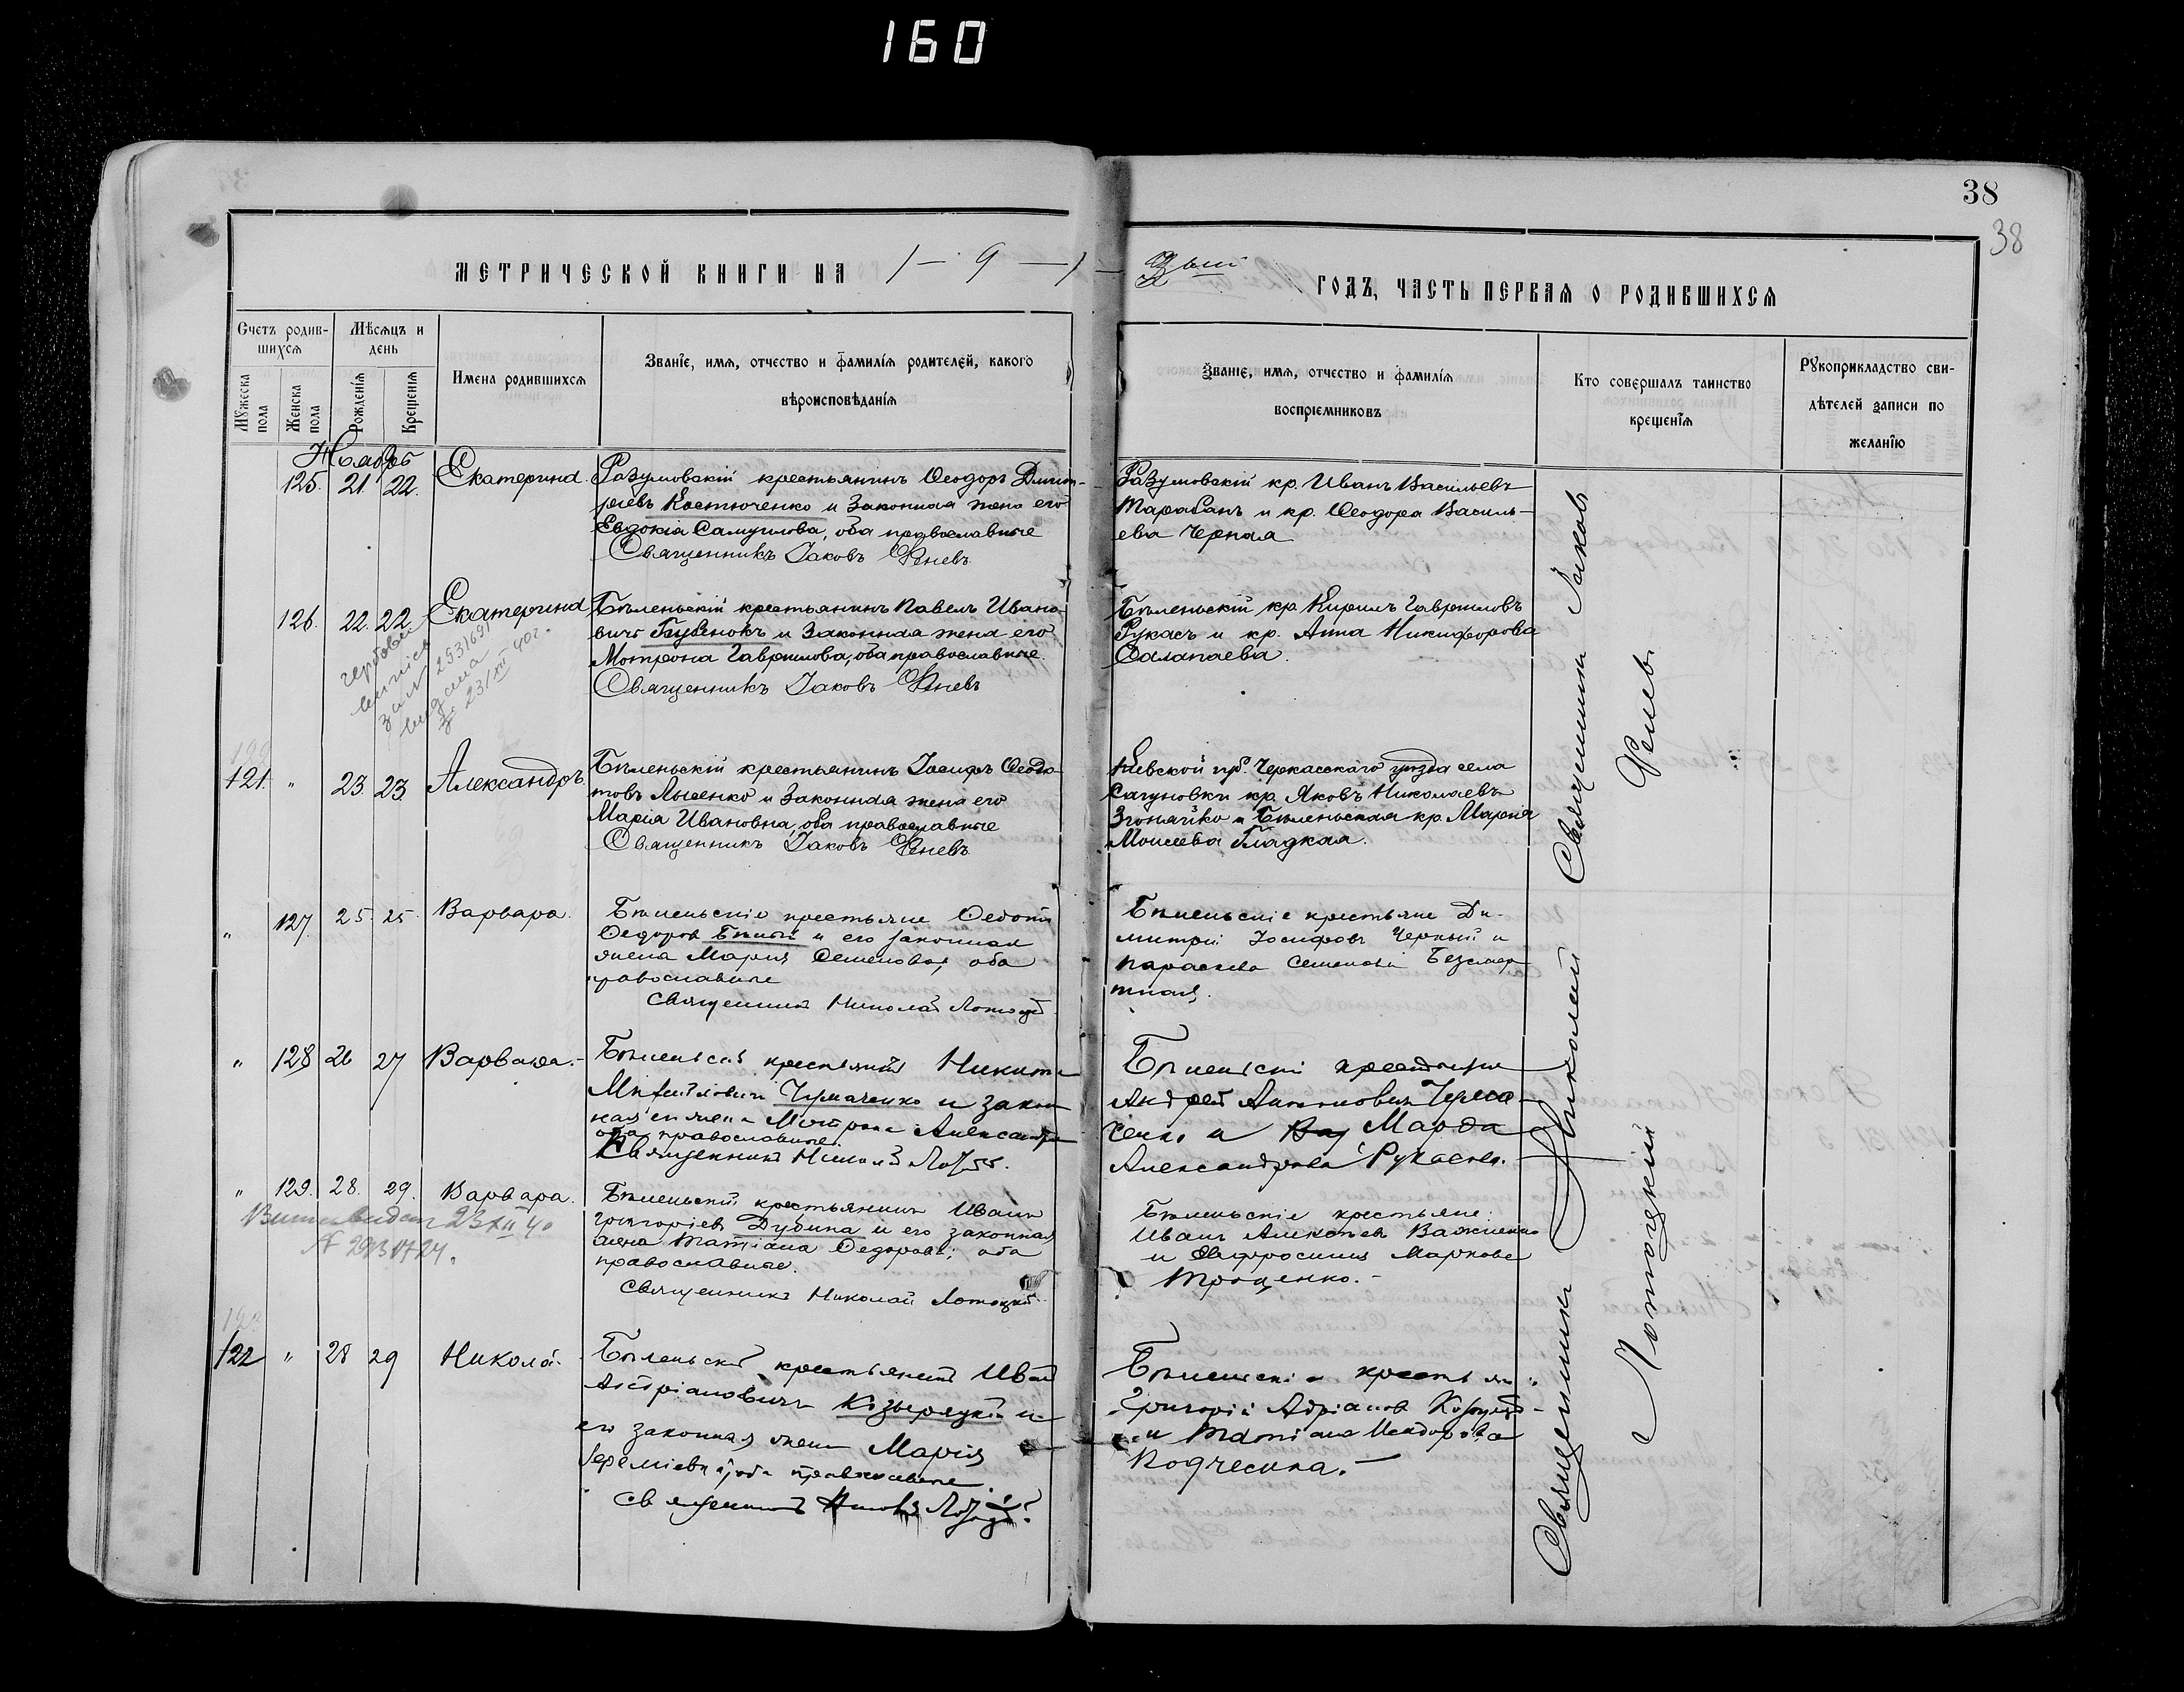 160
38
38
МЕТРИЧЕСКОЙ КНИГИ НА 1 — 9 — 1 —
ГОДЪ, ЧАСТЬ ПЕРВАЯ О РОДИВШИХСЯ
Счетъ родив-
шихся
Мѣсяцъ и
день
Мужеска
пола
Женска
пола
Рожденія
Крещенія
Имена родившихся
Званіе, имя, отчество и фамилія родителей, какого
вѣроисповѣданія
Званіе, имя, отчество и фамилія
воспріемниковъ
Кто совершалъ таинство
крещенія
Рукоприкладство сви-
дѣтелей записи по
желанію
Ноябрь
125. 21. 22. Екатерина.
Разумовскій крестьянинъ Ѳеодоръ Димит-
ріевъ Костюченко и законная жена его
Евдокія Самуилова, оба православные
Священникъ Іаковъ Феневъ
Разумовскій кр. Иванъ Васильевъ
Тарабанъ и кр. Ѳеодора Василь-
ева Черная
126. 22. 22 Екатерина
Бѣленьскій крестьянинъ Павелъ Ивано-
вичъ Голубенокъ и законная жена его
Мотрона Гаврилова, оба православные.
Священникъ Іаковъ Феневъ
Бѣленьскій кр. Кирилъ Гавриловъ
Рукасъ и кр. Анна Никифорова
Салапаева.
23/XII 40г.
121. " 23. 23. Александръ.
Бѣленьскій крестьянинъ Іосифъ Ѳедо-
товъ Лысенко и законная жена его
Марія Ивановна, оба православные
Священникъ Іаковъ Феневъ
Кіевской губ. Черкасскаго уѣзда села
Сагуновки кр. Яковъ Николаевъ
Згонайко и Бѣленьская кр. Марія
Моисеева Гладкая.
" 127. 25. 25. Варвара.
Бѣленьскіе крестьяне Ѳедотъ
Ѳедоровъ Бѣлый и его законная
жена Марія Семенова, оба
православные
Священникъ Николай Лотоцкій
Бѣленьскіе крестьяне Ди-
митрій Іосифовъ Черный и
Параскева Семенова Безсмер-
тная.
" 128 26 27 Варвара.
Бѣленьскій крестьянинъ Никита
Михайловичъ Чумаченко и закон
ная его жена Мотрона Александро
оба православные.
Священникъ Николай
Бѣленьскіе крестьяне
Андрей
и Марѳа
Александрова Рукасова.
" 129. 28. 29. Варвара.
23 XII 40
Бѣленьскій крестьянинъ Иванъ
Григоріевъ Дубина и его законная
жена Татіана Ѳедорова; оба
православные.
Священникъ Николай Лотоцкій
Бѣленьскіе крестьяне:
Иванъ Алексѣевъ Важненко
и Евфросинія Маркова
Троценко. -
122 " 28 29 Николай
Бѣленьскій крестьянинъ Иванъ
Адріановичъ Козыряцкій и
его законная жена Марія
Іереміевна; оба православные.
Священникъ
Бѣленьскіе крестьяне
Григорій Адріановъ
и Татіана
Подчесина. —
Священникъ Іаковъ
Феневъ.
Священникъ Николай
Лотоцкій